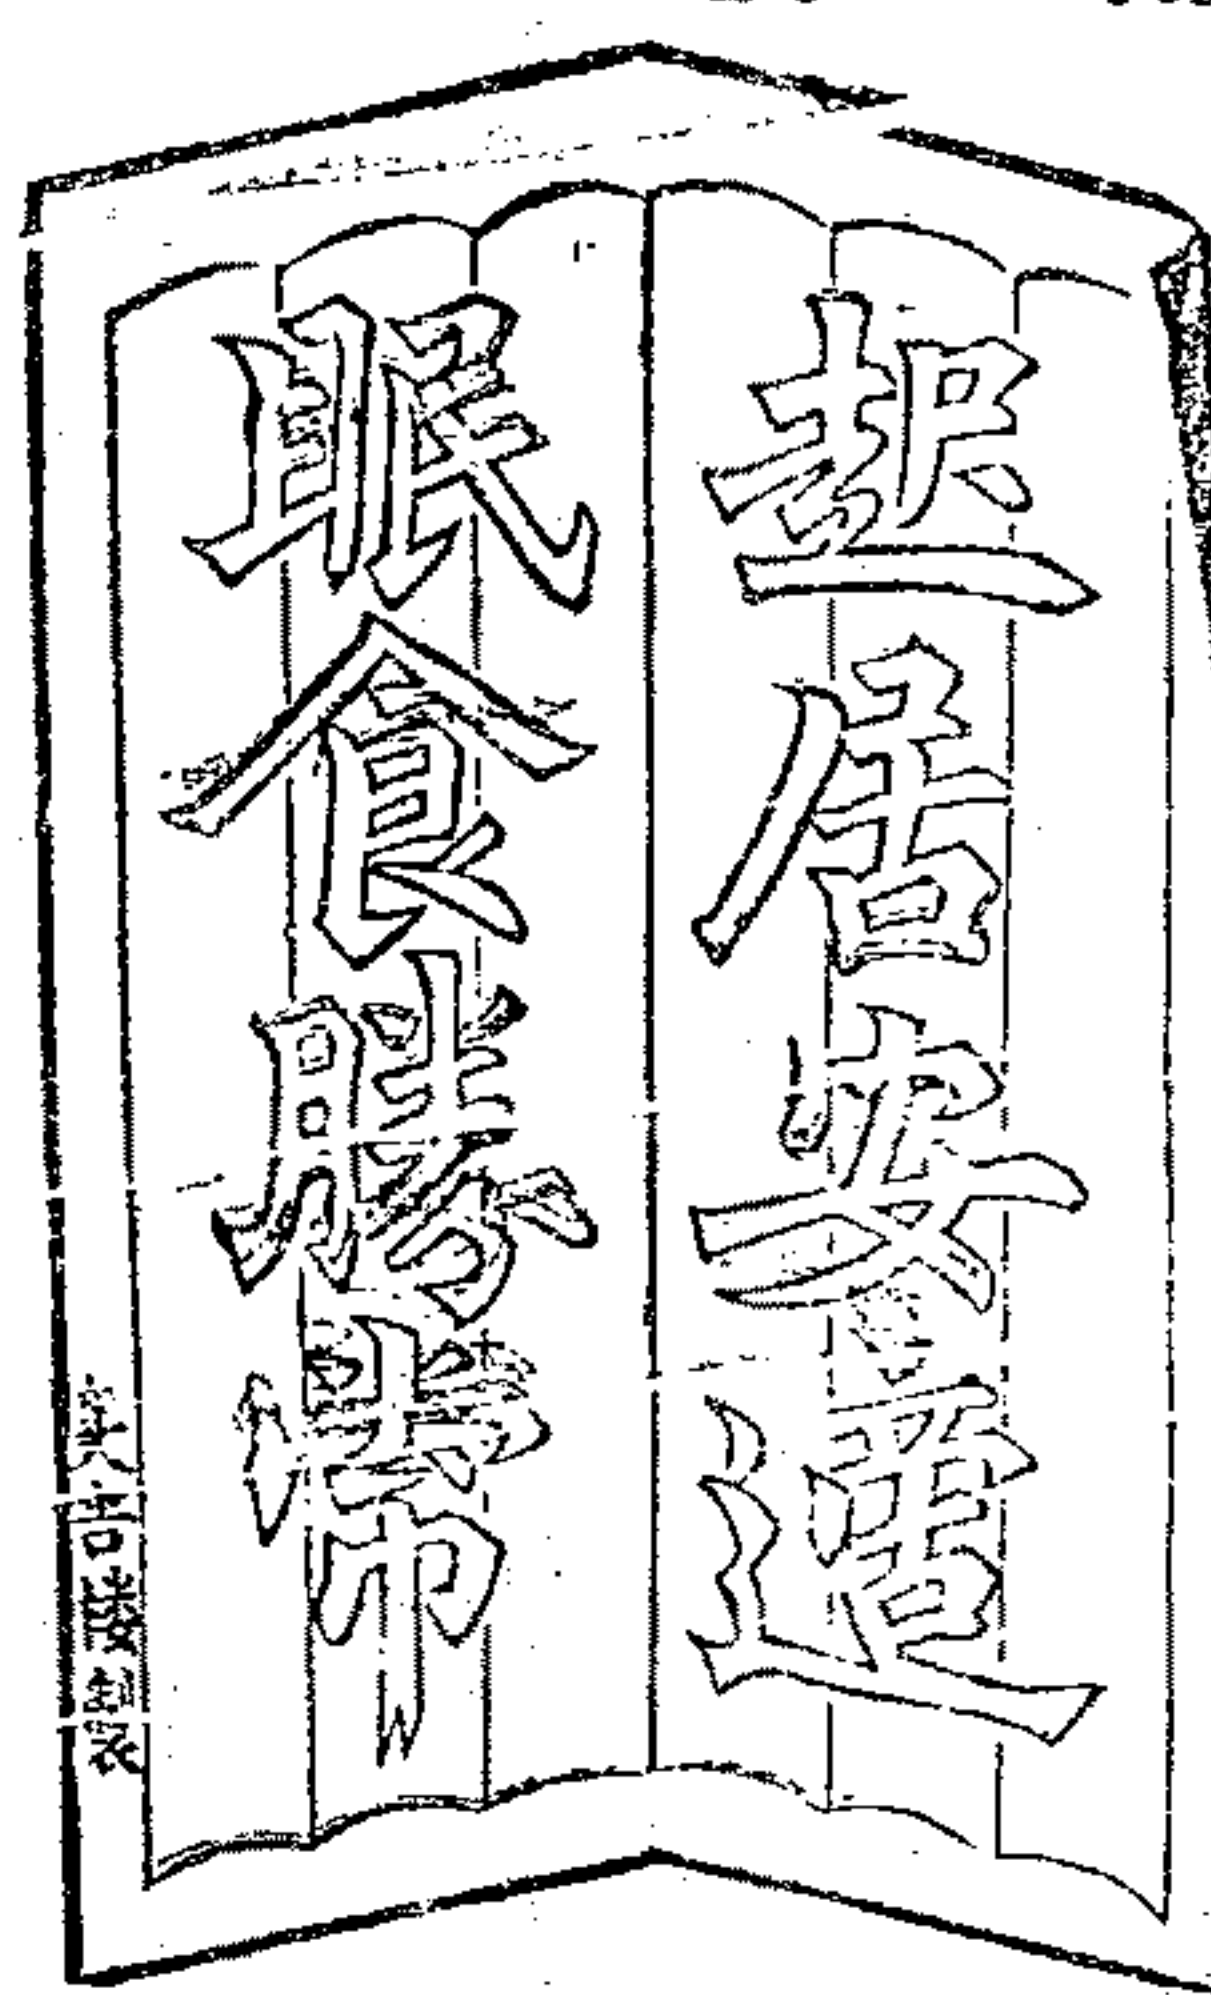 起居安適
眠食勝常